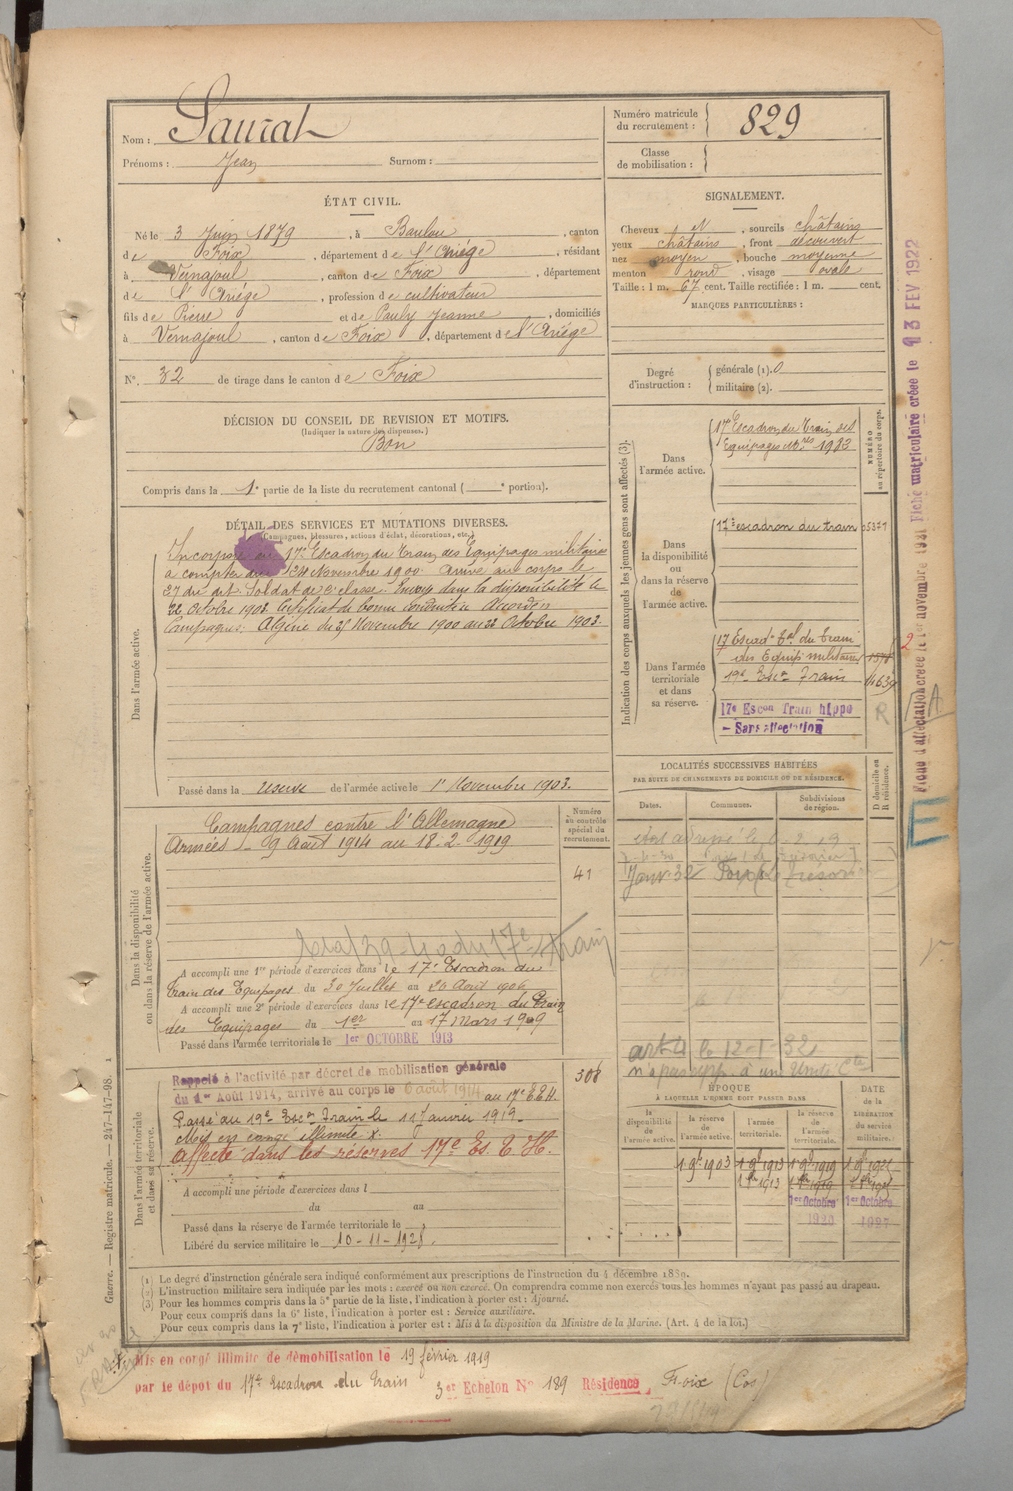 Nom : Saurat
Prénoms : Jean Surnom :
Numéro matricule du recrutement : 829
Classe de mobilisation :
ÉTAT CIVIL.
Né le 3 Juin 1879, à Baulou, canton
de Foix, département de l'Ariège, résidant
à Vernajoul, canton de Foix, département
de l'Ariège, profession de cultivateur
fils de Pierre et de Pauly Jeanne, domiciliés
à Vernajoul, canton de Foix, département de l'Ariège
N° 32 de tirage dans le canton de Foix
SIGNALEMENT.
Cheveux N, sourcils châtains
yeux châtains, front découvert
nez moyen, bouche moyenne
menton rond, visage ovale
Taille : 1 m. 67 cent. Taille rectifiée : 1 m. cent.
MARQUES PARTICULIÈRES :
Degré d'instruction :
générale (1). 0
militaire (2).
DÉCISION DU CONSEIL DE REVISION ET MOTIFS.
(Indiquer la nature des dispenses.)
Bon
Compris dans la 1e partie de la liste du recrutement cantonal ( e portion).
DÉTAIL DES SERVICES ET MUTATIONS DIVERSES.
(Campagnes, blessures, actions d'éclat, décorations, etc.)
Dans l'armée active.
Incorporé au 17e Escadron du Train des Equipages militaires
à compter du Novembre 1900. Arrivé au corps le
27 du dit. Soldat de 2e classe. Envoyé dans la disponibilité le
22 Octobre 1903. Certificat de bonne conduite Accordé
Campagnes: Algérie du 25 Novembre 1900 au 22 Octobre 1903.
Passé dans la réserve de l'armée active le 1er Novembre 1903.
Indication des corps auxquels les jeunes gens sont affectés (3).
NUMÉRO au répertoire du corps.
Dans l'armée active.
17e Escadron du Train des
Equipages Mres 1903
Dans la disponibilité ou dans la réserve de l'armée active.
17e escadron du train 05371
Dans l'armée territoriale et dans sa réserve.
17 Escadn Tal du Train
des Equip. militaires
19e Escn Train
17e Escon Train hippo
- Sans affectation
R
Dans la disponibilité ou dans la réserve de l'armée active.
Numéro au contrôle spécial du recrutement.
Campagnes contre l'Allemagne
Armées - 9 Août 1914 au 18-2-1919
41
A accompli une 1re période d'exercices dans le 17e Escadron du
Train des Equipages du 30 Juillet au 26 Août 1906
A accompli une 2e période d'exercices dans le 17e escadron du Train
des Equipages du 1er au 17 Mars 1909
Passé dans l'armée territoriale le 1er OCTOBRE 1913
LOCALITÉS SUCCESSIVES HABITÉES
PAR SUITE DE CHANGEMENTS DE DOMICILE OU DE RÉSIDENCE.
Dates. Communes. Subdivisions de région. D domicile ou R résidence.
Janv 32 Foix
art 4 le 12-1-32
Dans l'armée territoriale et dans sa réserve.
Rappelé à l'activité par décret de mobilisation générale
du 1er Août 1914, arrivé au corps le 6 août 1914 au 17e E.T.H.
308
Passé au 19e Escon Train le 11 Janvier 1919
Mis en congé illimité X.
Affecté dans les réserves 17e Es. T. H.
A accompli une période d'exercices dans l
du au
Passé dans la réserve de l'armée territoriale le
Libéré du service militaire le 10-11-1928.
ÉPOQUE
À LAQUELLE L'HOMME DOIT PASSER DANS
la disponibilité de l'armée active. la réserve de l'armée active. l'armée territoriale. la réserve de l'armée territoriale.
DATE de la LIBÉRATION du service militaire.
1 9bre 1903 1 9bre 1913 1 9bre 1919 1 9bre 1925
1er Octobre 1920
1er Octobre 1927
(1) Le degré d'instruction générale sera indiqué conformément aux prescriptions de l'instruction du 4 décembre 1889.
(2) L'instruction militaire sera indiquée par les mots : exercé ou non exercé. On comprendra comme non exercés tous les hommes n'ayant pas passé au drapeau.
(3) Pour les hommes compris dans la 5e partie de la liste, l'indication à porter est : Ajourné.
Pour ceux compris dans la 6e liste, l'indication à porter est : Service auxiliaire.
Pour ceux compris dans la 7e liste, l'indication à porter est : Mis à la disposition du Ministre de la Marine. (Art. 4 de la loi.)
Mis en congé illimité de démobilisation le 19 février 1919
par le dépôt du 17e Escadron du Train 3er Echelon N° 189 Résidence Foix
Guerre. — Registre matricule. — 247-147-98.
Fiche d'affectation créée le 1er novembre 1931
Fiche matriculaire créée le 13 FEV 1922
A
E